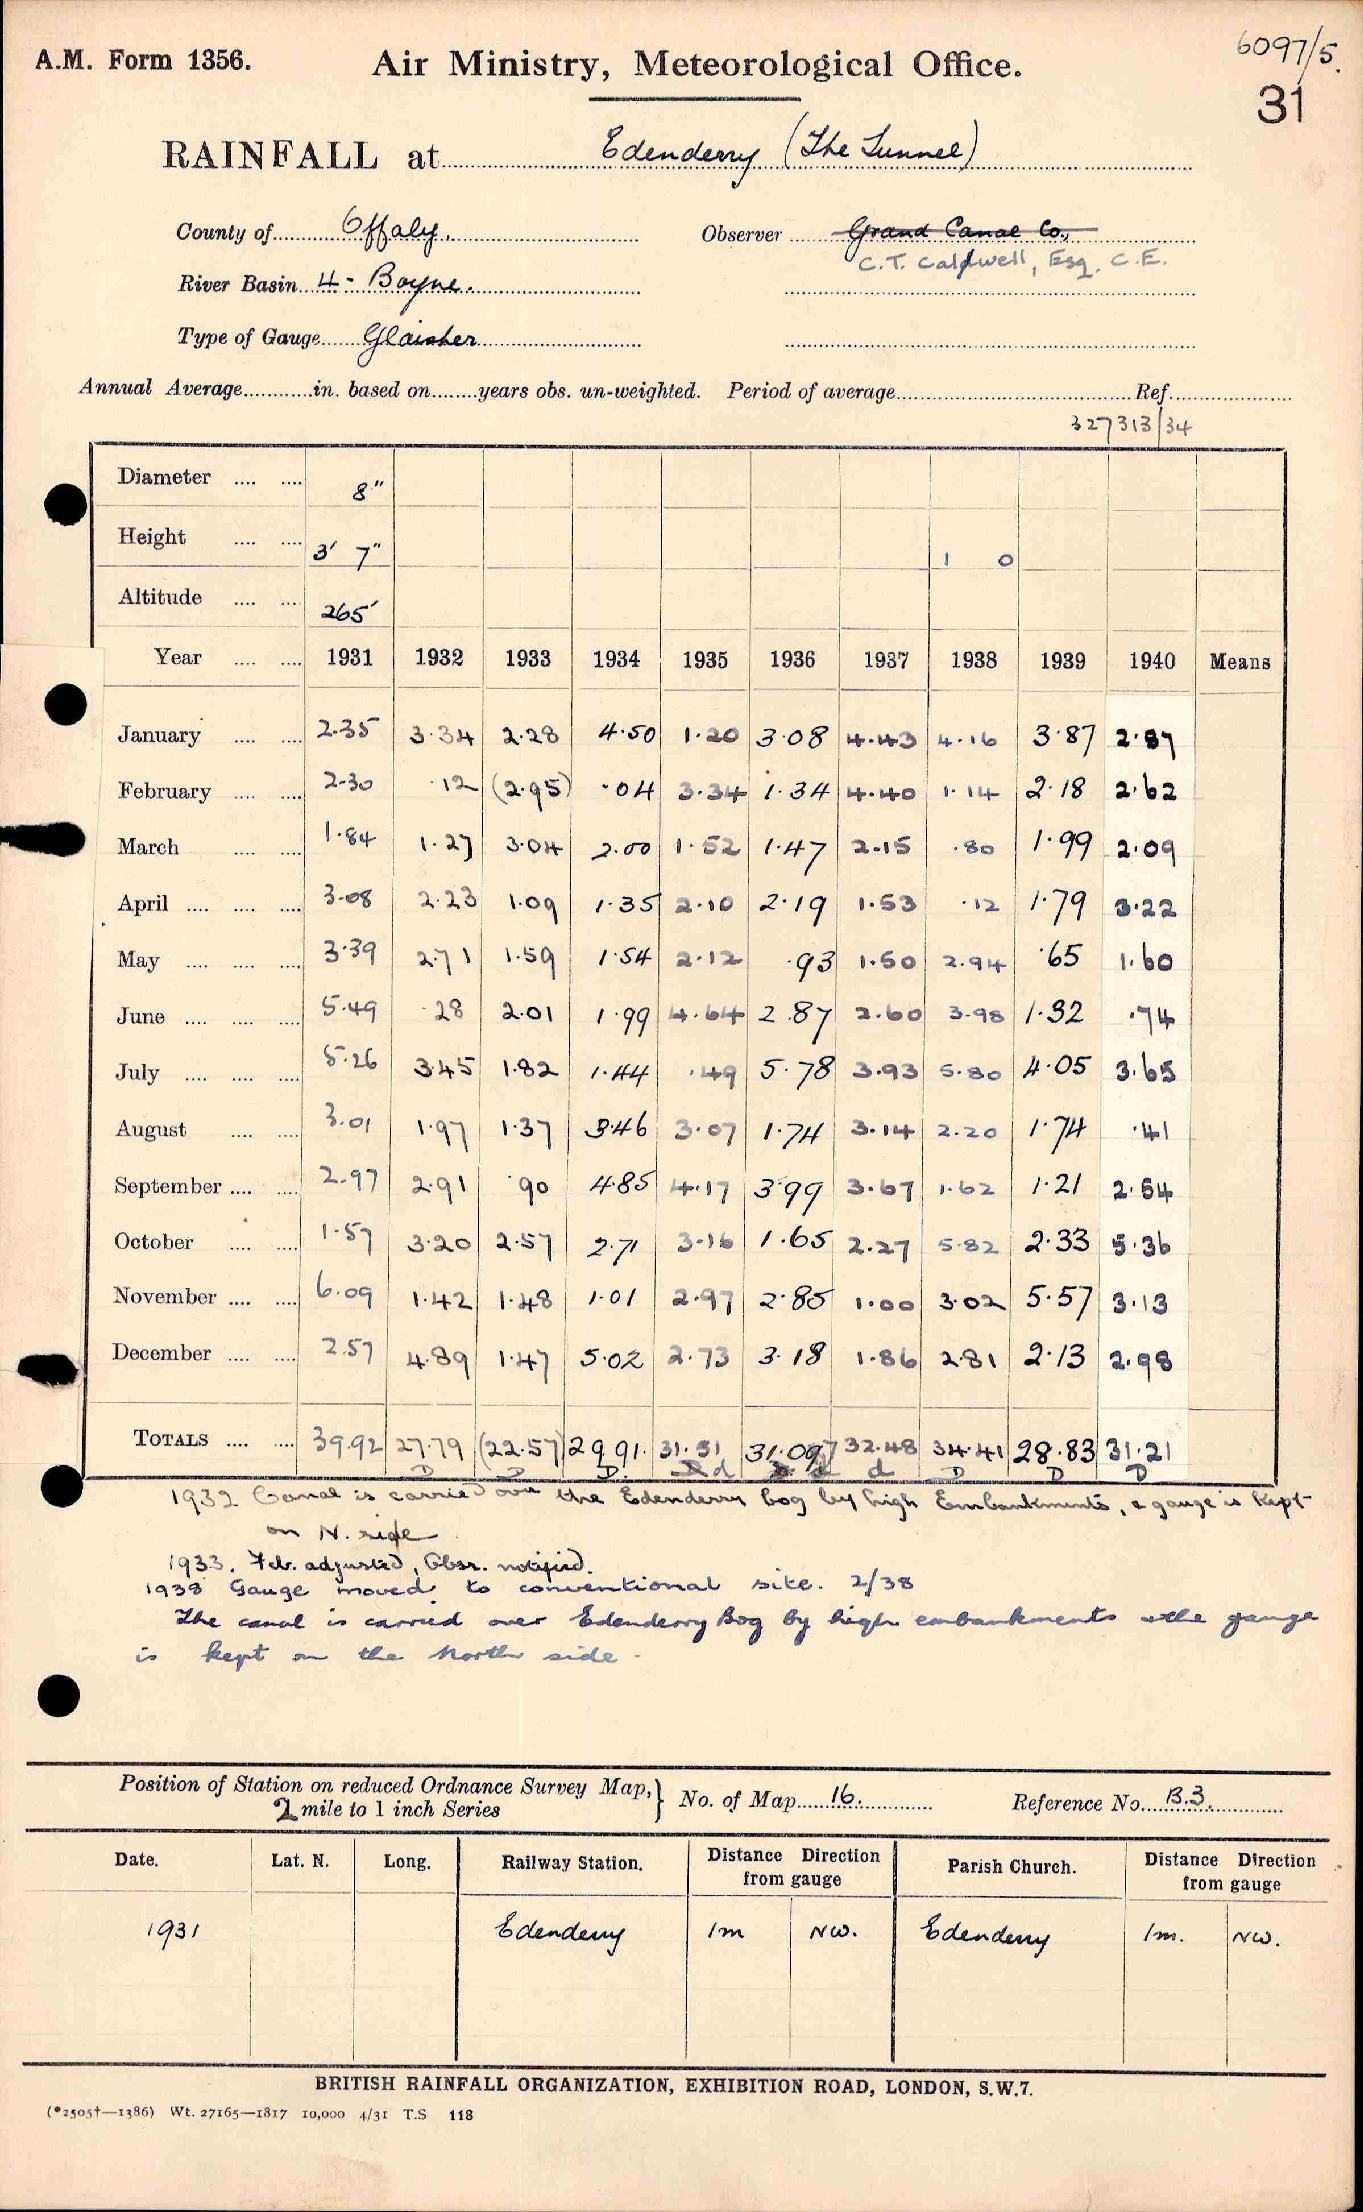 A.M. Form 1356. Air Ministry, Meteorological Office. 6097/5.
31
RAINFALL at Edenderry (The Tunnel)
County of Offaly. Observer Grand Canal Co.,
C.T. Caldwell, Esq. C.E.
River Basin 4 - Boyne.
Type of Gauge Glaisher
Annual Average in. based on years obs. un-weighted. Period of average Ref.
327313/34
Diameter 8"
Height 3' 7" 1 0
Altitude 265'
Year 1931 1932 1933 1934 1935 1936 1937 1938 1939 1940 Means
January 2.35 3.34 2.28 4.50 1.20 3.08 4.43 4.16 3.87 2.87
February 2.30 .12 (2.95) .04 3.34 1.34 4.40 1.14 2.18 2.62
March 1.84 1.27 3.04 2.00 1.52 1.47 2.15 .80 1.99 2.09
April 3.08 2.23 1.09 1.35 2.10 2.19 1.53 .12 1.79 3.22
May 3.39 2.71 1.59 1.54 2.12 .93 1.50 2.94 .65 1.60
June 5.49 .28 2.01 1.99 4.64 2.87 2.60 3.98 1.32 .74
July 5.26 3.45 1.82 1.44 .49 5.78 3.93 5.80 4.05 3.65
August 3.01 1.97 1.37 3.46 3.07 1.74 3.14 2.20 1.74 .41
September 2.97 2.91 .90 4.85 4.17 3.99 3.67 1.62 1.21 2.54
October 1.57 3.20 2.57 2.71 3.16 1.65 2.27 5.82 2.33 5.36
November 6.09 1.42 1.48 1.01 2.97 2.85 1.00 3.02 5.57 3.13
December 2.57 4.89 1.47 5.02 2.73 3.18 1.86 2.81 2.13 2.98
TOTALS 39.92 27.79 (22.57) 29.91 31.51 31.07 32.48 34.41 28.83 31.21
D D D. d d d D D D
1932 Canal is carried over the Edenderry bog by high Embankments, & gauge is kept
on N. side
1933. Feb. adjusted, Obsr. notified.
1938 Gauge moved to conventional site. 2/38
The canal is carried over Edenderry Bog by high embankments & the gauge
is kept on the North side.
Position of Station on reduced Ordnance Survey Map,} No. of Map 16. Reference No. B.3.
2 mile to 1 inch Series
Date. Lat. N. Long. Railway Station. Distance Direction from gauge Parish Church. Distance Direction from gauge
1931 Edenderry 1m NW. Edenderry 1m. NW.
BRITISH RAINFALL ORGANIZATION, EXHIBITION ROAD, LONDON, S.W.7.
(*2505†—1386) Wt. 27165—1817 10,000 4/31 T.S 118